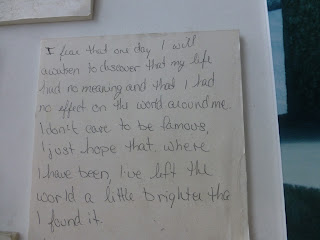 I fear that one day I will
awaken to discover that my life
had no meaning and that I had
no effect on the world around me.
I don't care to be famous,
I just hope that, where
I have been, I've left the
world a little brighter tha
I found it.